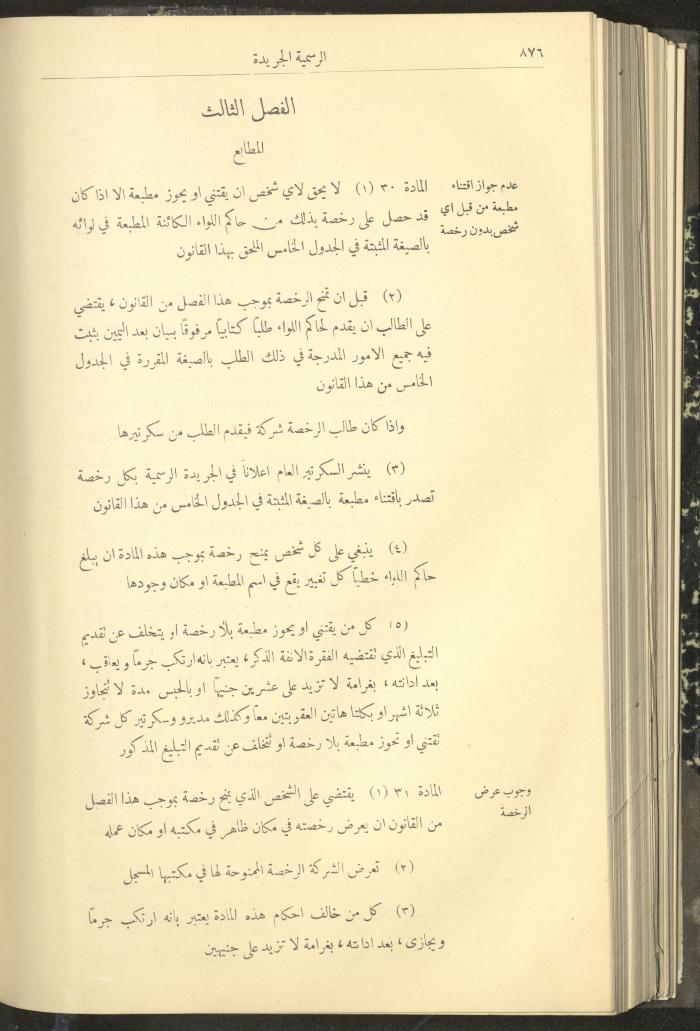 ٨٧٦
الرسمية الجريدة
الفصل الثالث
المطابع
عدم جواز اقتناء
مطبعة من قبل اي
شخص بدون رخصة
المادة ٣٠ (١) لا يحق لاي شخص ان يقتني او يحوز مطبعة الا اذا كان
قد حصل على رخصة بذلك من حاكم اللواء الكائنة المطبعة في لوائه
بالصيغة المثبتة في الجدول الخامس الملحق بهذا القانون
(٢) قبل ان تمنح الرخصة بموجب هذا الفصل من القانون، يقتضي
على الطالب ان يقدم لحاكم اللواء طلبًا كتابيًا مرفوقًا ببيان بعد اليمين يثبت
فيه جميع الامور المدرجة في ذلك الطلب بالصيغة المقررة في الجدول
الخامس من هذا القانون
واذا كان طالب الرخصة شركة فيقدم الطلب من سكرتيرها
(٣) ينشر السكرتير العام اعلانًا في الجريدة الرسمية بكل رخصة
تصدر باقتناء مطبعة بالصيغة المثبتة في الجدول الخامس من هذا القانون
(٤) ينبغي على كل شخص يمنح رخصة بموجب هذه المادة ان يبلغ
حاكم اللواء خطيًا كل تغيير يقع في اسم المطبعة او مكان وجودها
(٥) كل من يقتني او يحوز مطبعة بلا رخصة او يتخلف عن تقديم
التبليغ الذي تقتضيه الفقرة الانفة الذكر، يعتبر بانه ارتكب جرمًا ويعاقب،
بعد ادانته، بغرامة لا تزيد على عشرين جنيهًا او بالحبس مدة لا تتجاوز
ثلاثة اشهر او بكلتا هاتين العقوبتين معًا وكذلك مديرو وسكرتير كل شركة
تقتني او تحوز مطبعة بلا رخصة او تتخلف عن تقديم التبليغ المذكور
وجوب عرض
الرخصة
المادة ٣١ (١) يقتضي على الشخص الذي يمنح رخصة بموجب هذا الفصل
من القانون ان يعرض رخصته في مكان ظاهر في مكتبه او مكان عمله
(٢) تعرض الشركة الرخصة الممنوحة لها في مكتبها المسجل
(٣) كل من خالف احكام هذه المادة يعتبر بانه ارتكب جرمًا
ويجازى، بعد ادانته، بغرامة لا تزيد على جنيهين